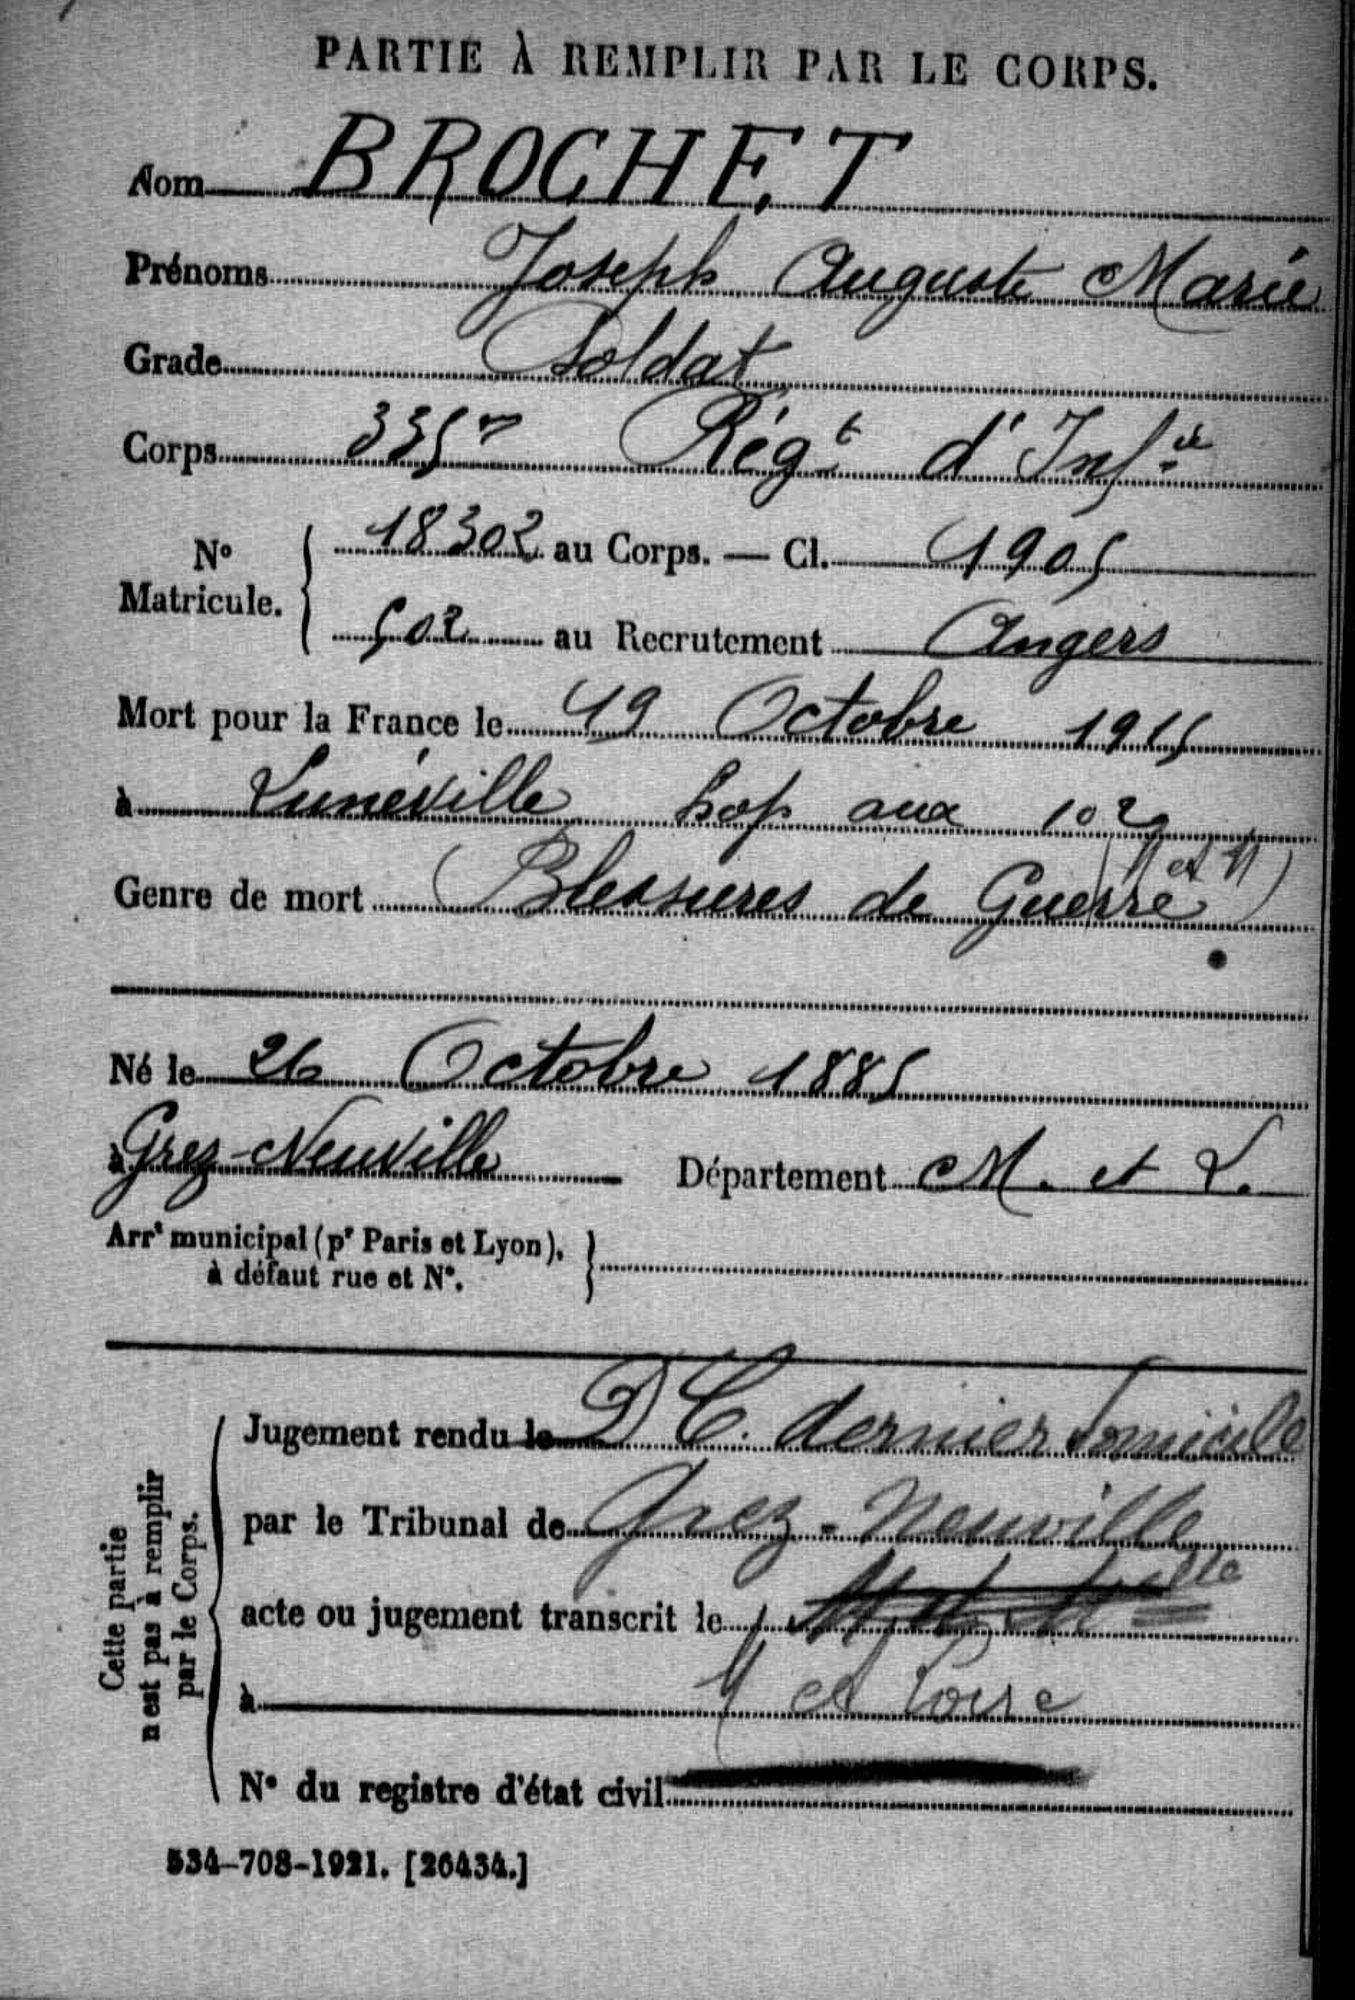 PARTIE À REMPLIR PAR LE CORPS.
Nom BROCHET
Prénoms Joseph Auguste Marie
Grade Soldat
Corps 335e Régt d'Infie
No Matricule. 18302 au Corps. — Cl. 1905
502 au Recrutement Angers
Mort pour la France le 19 Octobre 1915
à Lunéville hop aux
(M et M)
Genre de mort Blessures de Guerre
Né le 26 Octobre 1885
à Grez-Neuville Département M. et L.
Arrt municipal (pr Paris et Lyon),
à défaut rue et No.
Cette partie
n'est pas à remplir
par le Corps.
Jugement rendu le D C. dernier domicile
par le Tribunal de Grez-Neuville
acte ou jugement transcrit le
à M et Loire
No du registre d'état civil
534-708-1921. [26434.]